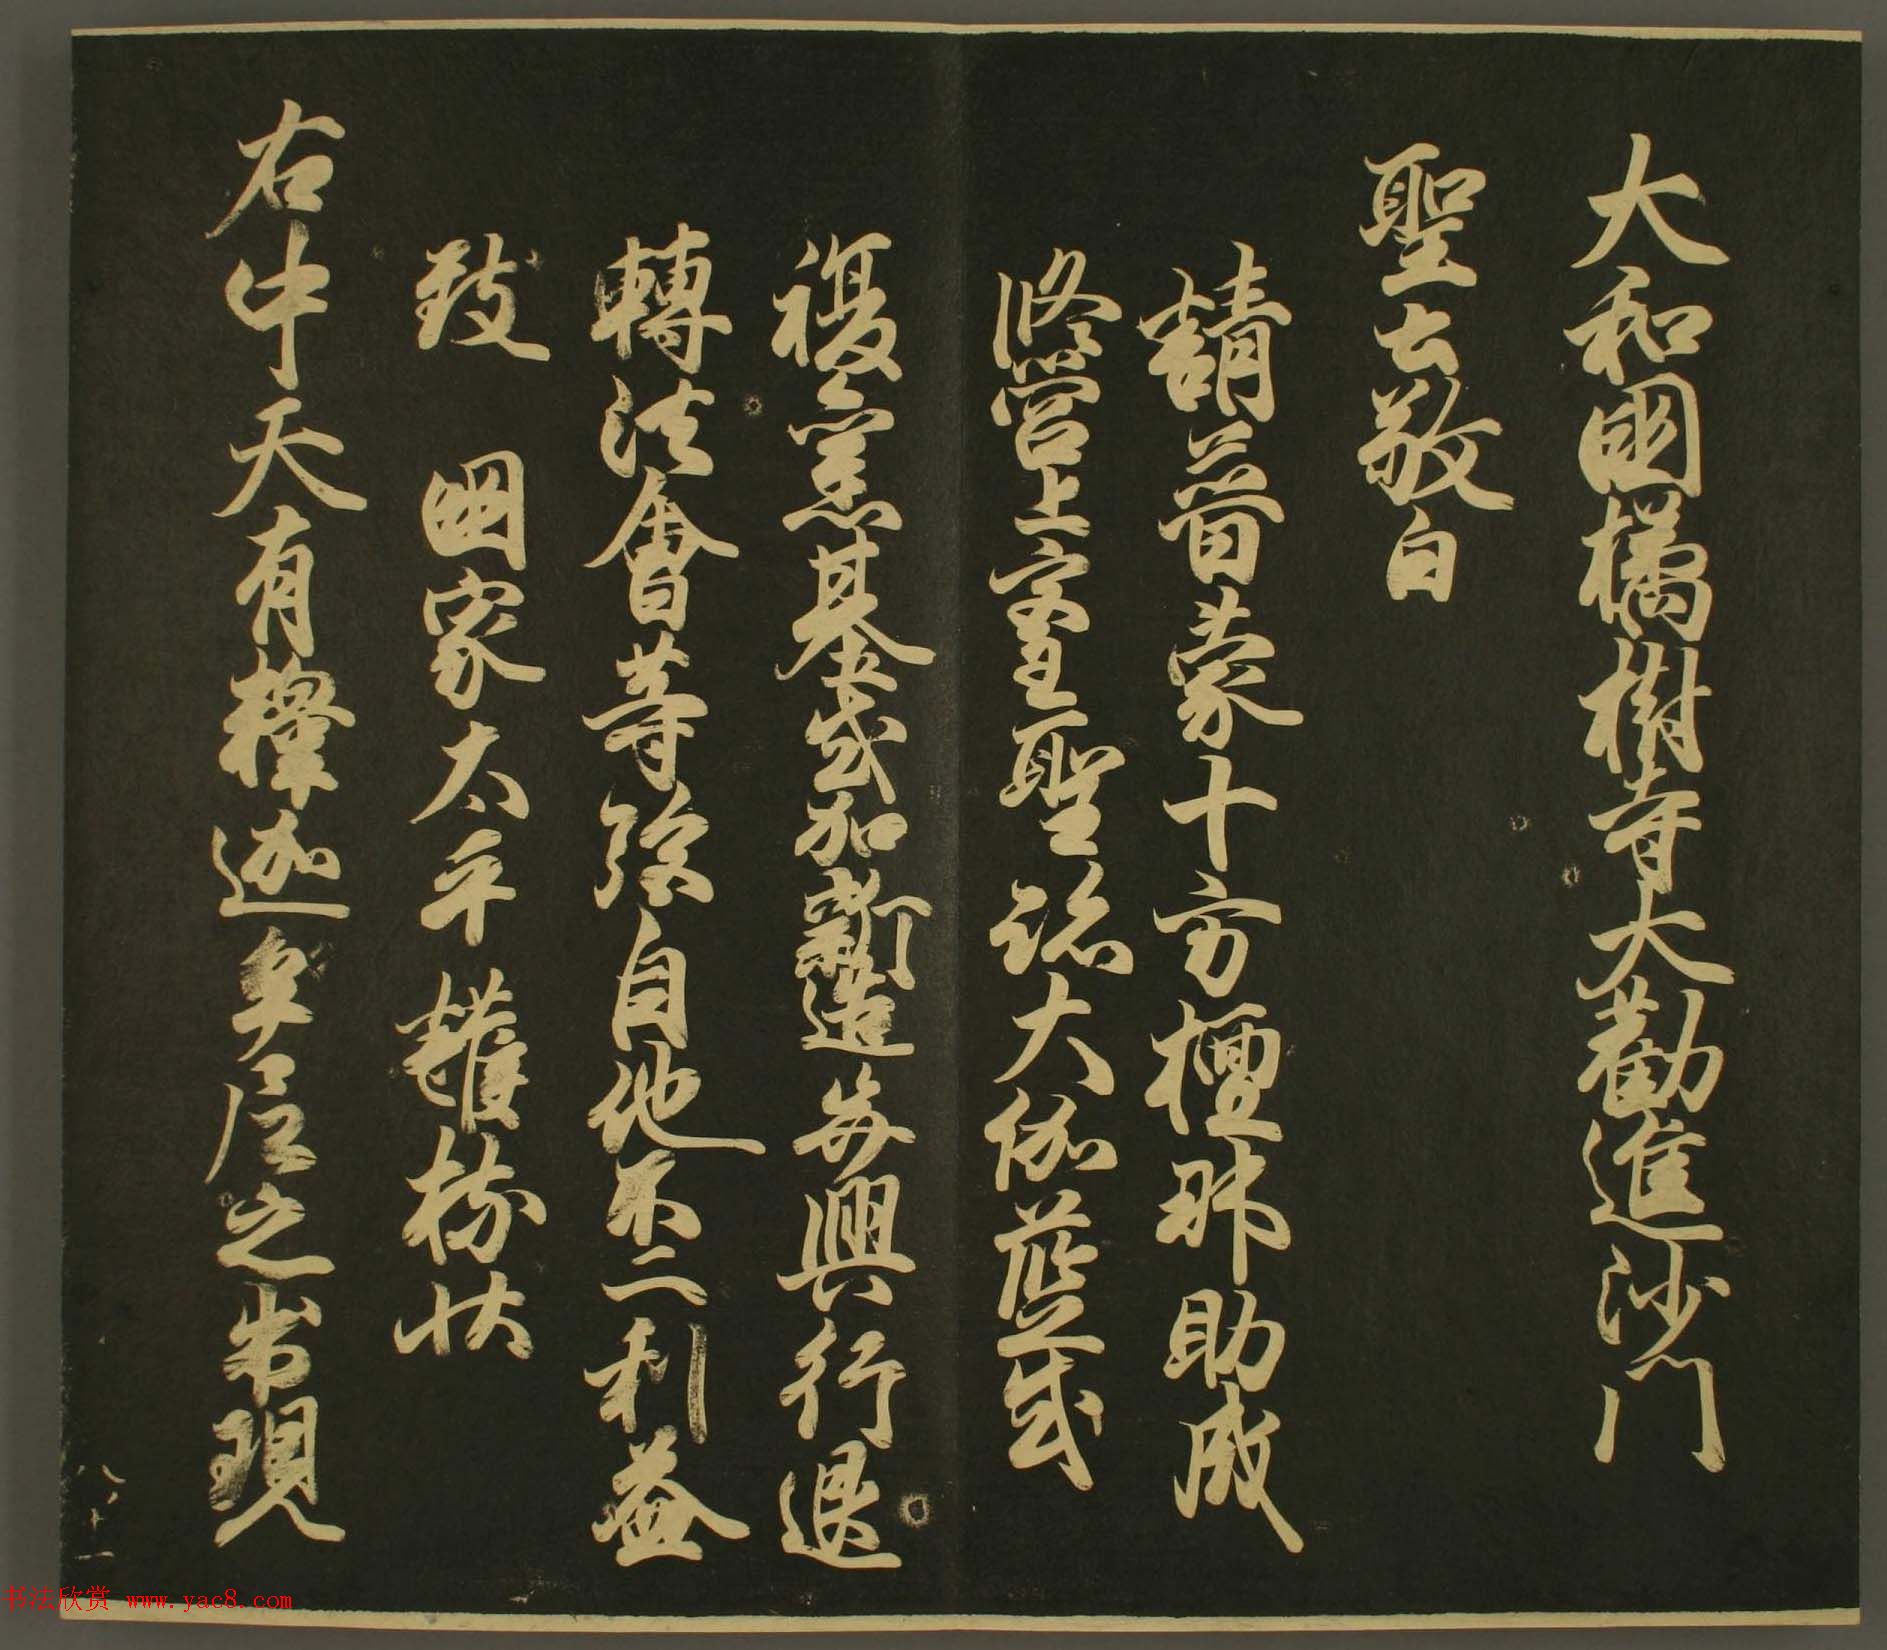 大和國橘樹寺大勸進沙門
聖云敬白
請普蒙十方檀那助成
修營上宮聖跡大伽藍或
複舊基或加新造兼興行退
轉法會等除自他不二利益
致 國家太平護持狀
右中天有釋迦牟尼之出現
八十一
书法欣赏 www.yac8.com